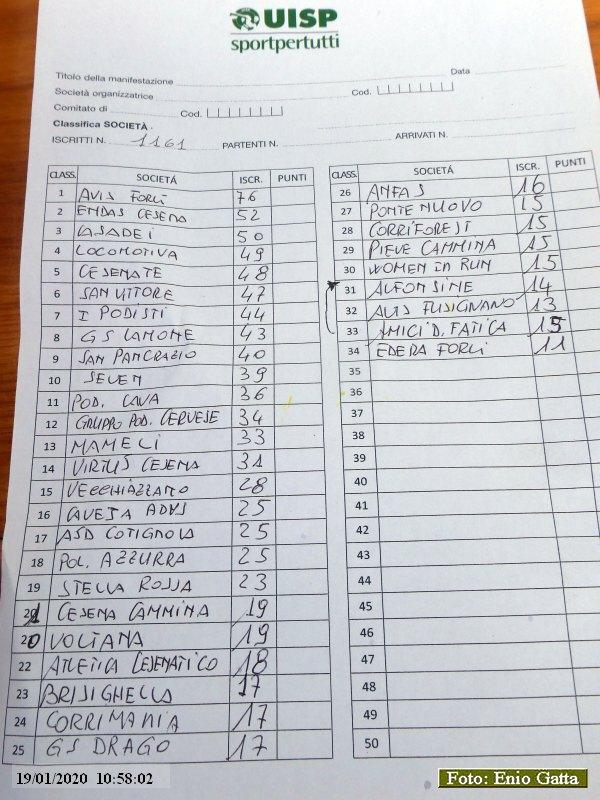 UISP
sportpertutti
Titolo della manifestazione
Data
Società organizzatrice
Cod.
Comitato di
Cod.
Classifica SOCIETÀ
ISCRITTI N. 1161 PARTENTI N. ARRIVATI N.
CLASS. SOCIETÁ ISCR. PUNTI
1 AVIS FORLI 76
2 ENDAS CESENA 52
3 CASADEI 50
4 LOCOMOTIVA 49
5 CESENATE 48
6 SAN VITTORE 47
7 I PODISTI 44
8 GS LAMONE 43
9 SAN PANCRAZIO 40
10 SEVEN 39
11 POD. CAVA 36
12 GRUPPO POD. CERVESE 34
13 MAMELI 33
14 VIRTUS CESENA 31
15 VECCHIAZZANO 28
16 CAVEJA ADVS 25
17 ASD COTIGNOLA 25
18 POL. AZZURRA 25
19 STELLA ROSSA 23
21 CESENA CAMMINA 19
20 VOLTANA 19
22 ATLETICA CESENATICO 18
23 BRISIGHELLA 17
24 CORRIMANIA 17
25 GS DRAGO 17
CLASS. SOCIETÁ ISCR. PUNTI
26 ANFAS 16
27 PONTE NUOVO 15
28 CORRIFOREST 15
29 PIEVE CAMMINA 15
30 WOMEN IN RUN 15
31 ALFONSINE 14
32 AVIS FUSIGNANO 13
33 AMICI D. FATICA 15
34 EDERA FORLI 11
35
36
37
38
39
40
41
42
43
44
45
46
47
48
49
50
19/01/2020 10:58:02
Foto: Enio Gatta